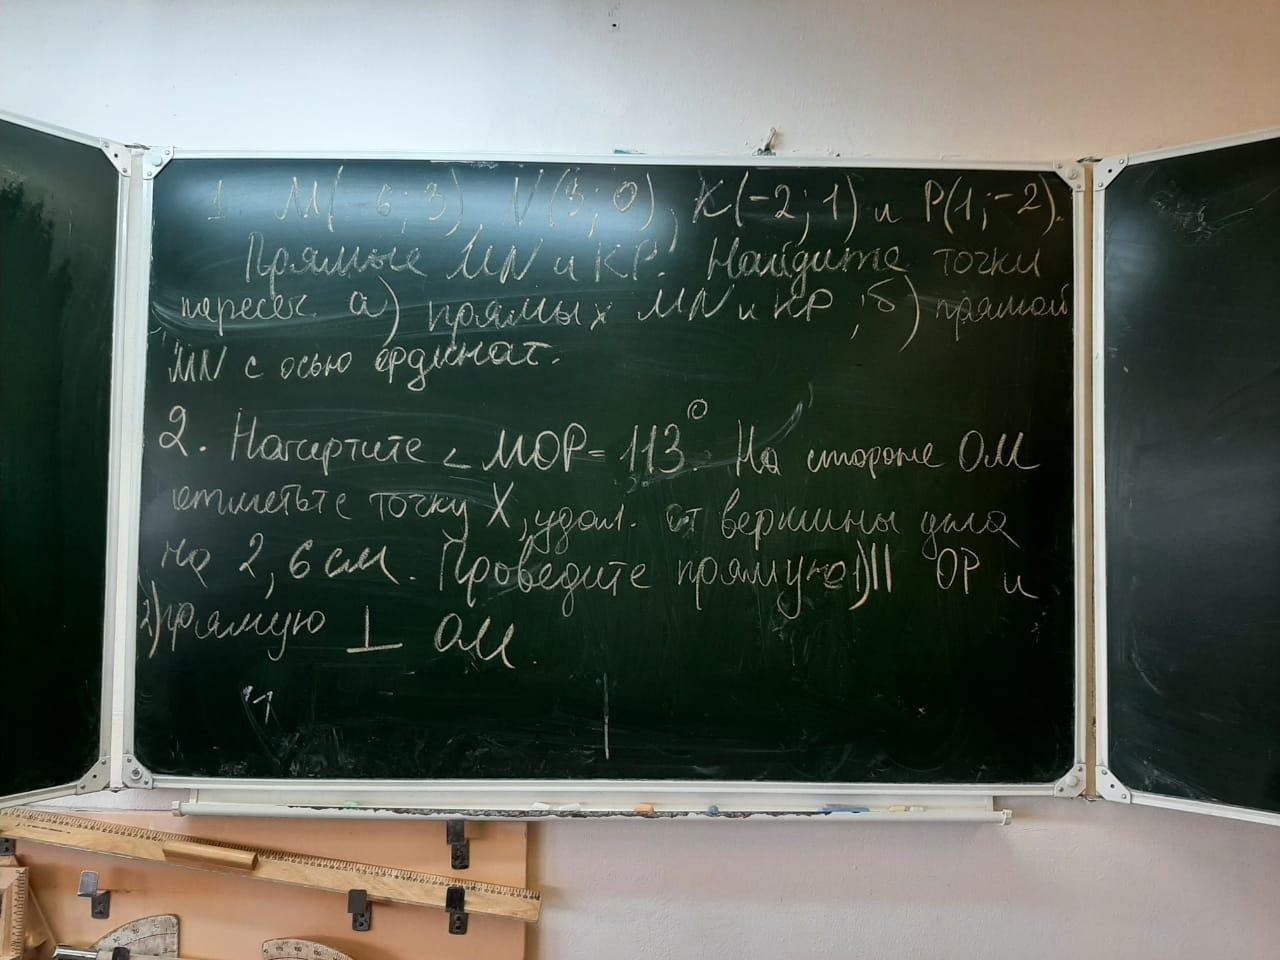 1 M(-6;3), N(3;0), K(-2;1) и P(1;-2).
Прямые MN и KP. Найдите точки
пересеч. а) прямых MN и KP; б) прямой
MN с осью ординат.
2. Начертите ∠ MOP = 113°. На стороне OM
отметьте точку X, удал. от вершины угла
на 2,6 см. Проведите прямую 1) || OP и
2) прямую ⊥ OM.